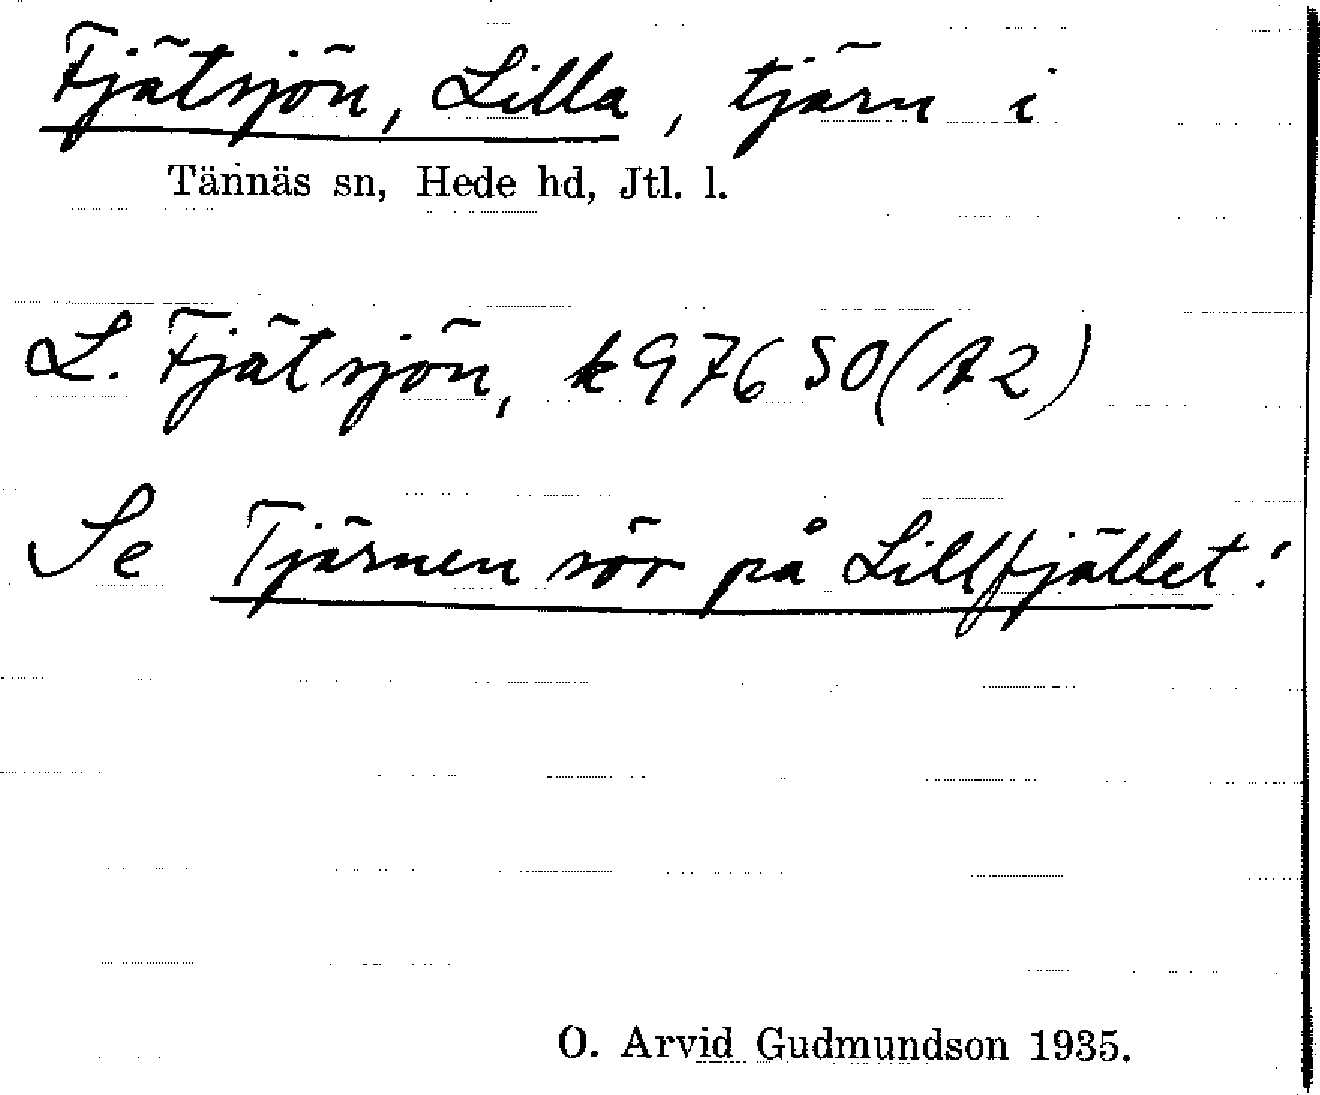 Fjätsjön, Lilla, tjärn i
Tännäs sn, Hede hd, Jtl. l.
L. Fjätsjön, k 97650 (A2)
Se Tjärnen sör på Lillfjället!
O. Arvid Gudmundson 1935.